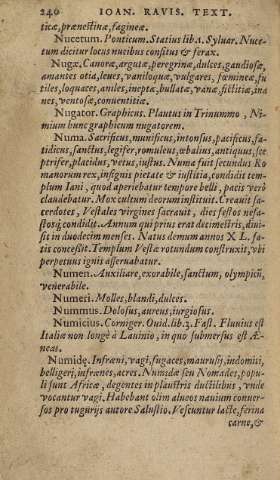 240 IOAN. RAVIS. TEXT.
ticæ, prænestinæ, fagineæ.
Nucetum. Ponticum. Statius lib. 1. Syluar. Nuce-
tum dicitur locus nucibus consitus & ferax.
Nugæ. Canoræ, argutæ, peregrinæ, dulces, gandiosæ,
amantes otia, leues, vaniloquæ, vulgares, fœmineæ, fu
tiles, loquaces, aniles, ineptæ, bullatæ, vanæ, fictitiæ, ina
nes, ventosæ, conuentitiæ.
Nugator. Graphicus. Plautus in Trinummo, Ni-
mium hunc graphicum nugatorem.
Numa. Sacrificus, munificus, intonsus, pacificus, fa-
tidicus, sanctus, legifer, romuleus, æbalius, antiquus, sce
ptrifer, placidus, verus, iustus. Numa fuit secundus Ro
manorum rex, insignis pietate & iustitia, condidit tem-
plum Iani, quod aperiebatur tempore belli, pacis verò
claudebatur. Mox cultum deorum instituit. Creauit sa-
cerdotes, Vestales virgines sacrauit, dies festos nefa-
stosq́; condidit. Annum qui prius erat decimestris, diui-
sit in duodecim menses. Natus demum annos XL. fa-
tis concessit. Templum Vestæ rotundum construxit, vbi
perpetuus ignis asseruabatur.
Numen. Auxiliare, exorabile, sanctum, olympicũ,
venerabile.
Numeri. Molles, blandi, dulces.
Nummus. Dolosus, aureus, iurgiosus.
Numicius. Corniger. Ouid. lib. 3. Fast. Fluuius est
Italiæ non longè à Lauinio, in quo submersus est Æ-
neas.
Numidę. Infræni, vagi, fugaces, maurusij, indomiti,
belligeri, infrænes, acres. Numidæ seu Nomades, popu-
li sunt Africæ, degentes in plaustris ductilibus, vnde
vocantur vagi. Habebant olim alueos nauium conuer-
sos pro tugurijs autore Salustio. Vescuntur lacte, ferina
carne, &